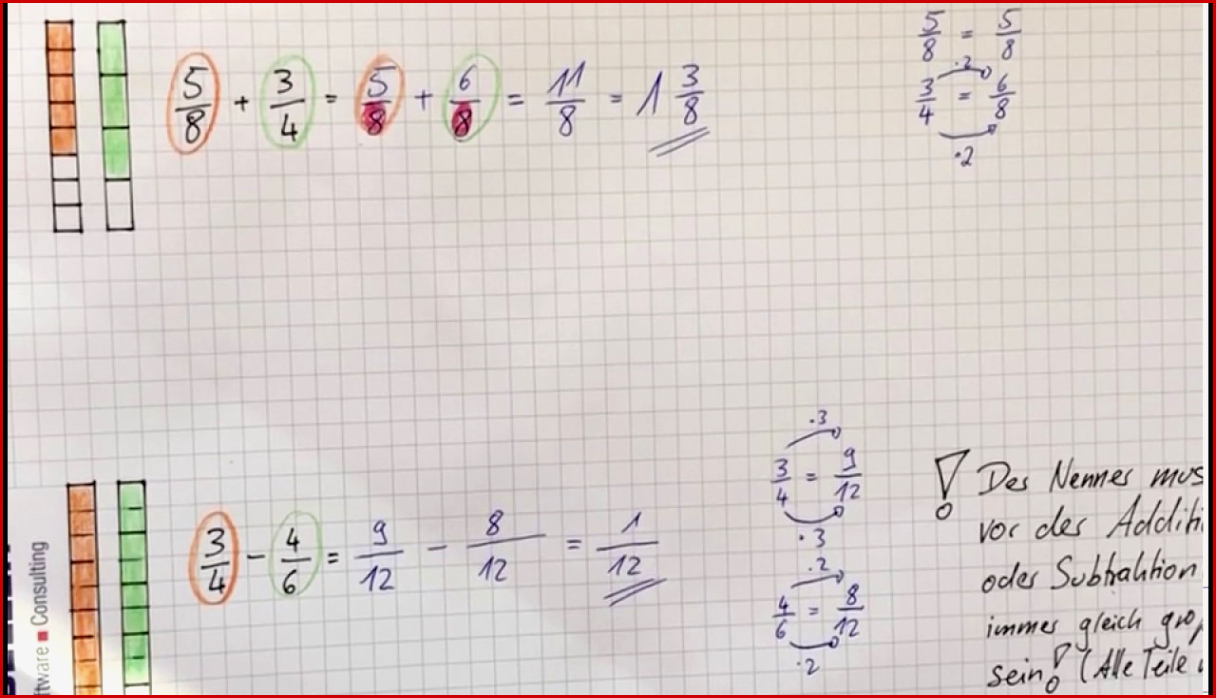 5/8 + 3/4 = 5/8 + 6/8 = 11/8 = 1 3/8
5/8 = 5/8
·2
3/4 = 6/8
·2
3/4 - 4/6 = 9/12 - 8/12 = 1/12
·3
3/4 = 9/12
·3
·2
4/6 = 8/12
·2
! Der Nenner mus
vor der Additi
oder Subtraktion
immer gleich gro
sein! (Alle Teile
ftware ■ Consulting